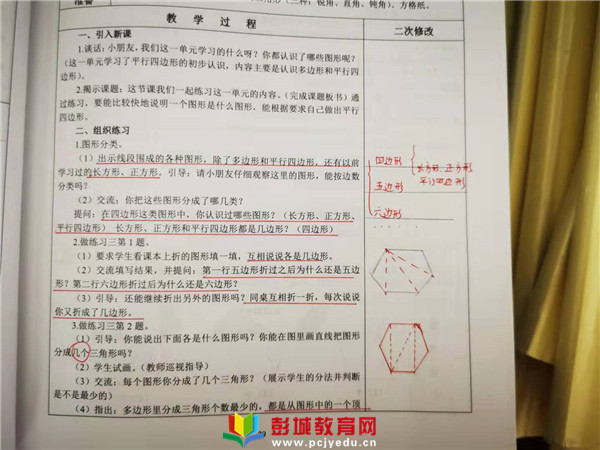 准备
（三种：锐角、直角、钝角）、方格纸。
教 学 过 程
二次修改
一、引入新课
1.谈话：小朋友，我们这一单元学习的什么呀？你都认识了哪些图形呢？
（这一单元学习了平行四边形的初步认识，内容主要是认识多边形和平行四
边形）。
2.揭示课题：这节课我们一起练习这一单元的内容。（完成课题板书）通
过练习，要能比较快地说明一个图形是什么图形，能根据要求自己做出平行
四边形。
二、组织练习
1.图形分类。
（1）出示线段围成的各种图形，除了多边形和平行四边形，还有以前
学习过的长方形、正方形。引导：请小朋友仔细观察这里的图形，能按边数
分类吗？
（2）交流：你把这些图形分成了哪几类？
提问：在四边形这类图形中，你认识过哪些图形？（长方形、正方形、
平行四边形） 长方形、正方形和平行四边形都是几边形？（四边形）
2.做练习三第 1 题。
（1）要求学生看课本上折的图形填一填，互相说说各是几边形。
（2）交流填写结果，并提问：第一行五边形折过之后为什么还是五边
形？第二行六边形折过后为什么还是六边形？
（3）引导：还能继续折出另外的图形吗？同桌互相折一折，每次说说
你又折成了几边形。
3.做练习三第 2 题。
（1）引导：你能说出下面各是什么图形？你能在图里画直线把图形
分成几个三角形吗？
（2）学生试画。（教师巡视指导）
（3）交流：每个图形你分成了几个三角形？（展示学生的分法并判断
是不是最少的）
（4）指出：多边形里分成三角形个数最少的，都是从图形中的一个顶
四边形
长方形、正方形
平行四边形
五边形
六边形
……
彭城教育网
www.pcjyedu.cn